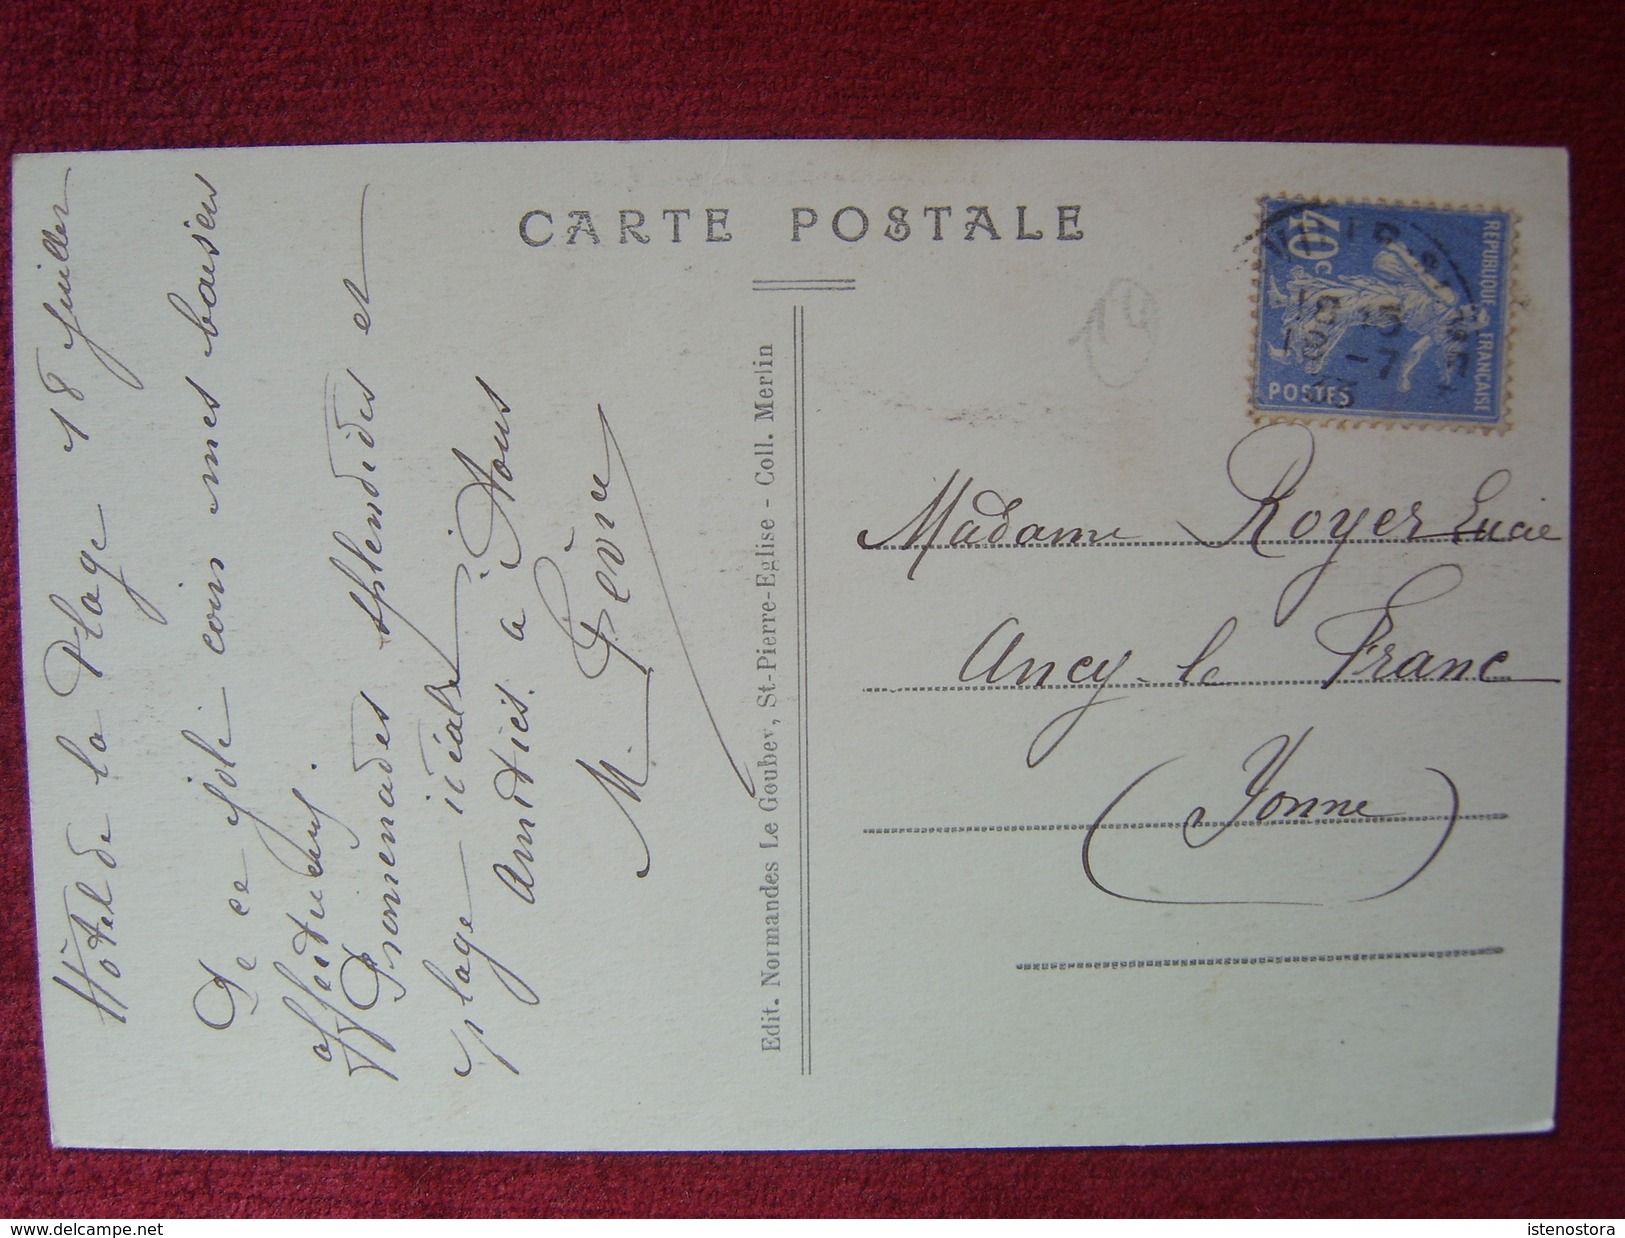 CARTE POSTALE
Hôtel de la Plage 18 Juillet
De ce joli coin mes baisers
affectueux.
Promenades splendides et
plage idéale. Nous
Amitiés à
M.
Edit. Normandes Le Goubey, St-Pierre-Eglise - Coll. Merlin
REPUBLIQUE FRANÇAISE
40c
POSTES
18 15
18 -7
33
Madame Royer Lucie
Ancy-le Franc
(Yonne)
istenostora
delcampe.net